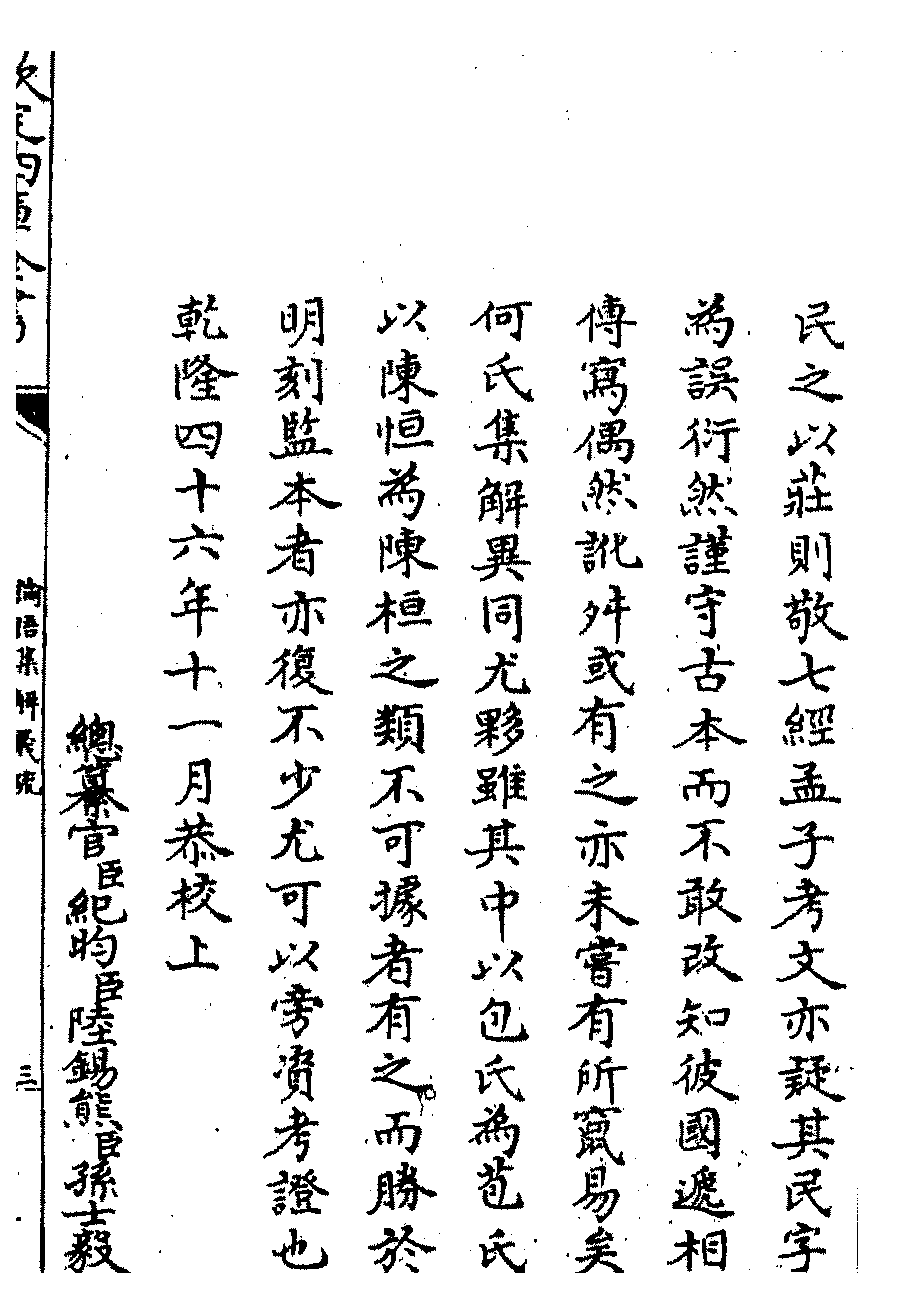 民之以莊則敬七經孟子考文亦疑其民字
為誤衍然謹守古本而不敢改知彼國遞相
傳寫偶然訛舛或有之亦未嘗有所竄易矣
何氏集解異同尤夥雖其中以包氏為苞氏
以陳恒為陳桓之類不可據者有之而勝於
明刻監本者亦復不少尤可以旁資考證也
乾隆四十六年十一月恭校上
總纂官臣紀昀臣陸錫熊臣孫士毅
欽定四庫全書
論語集解義疏
三